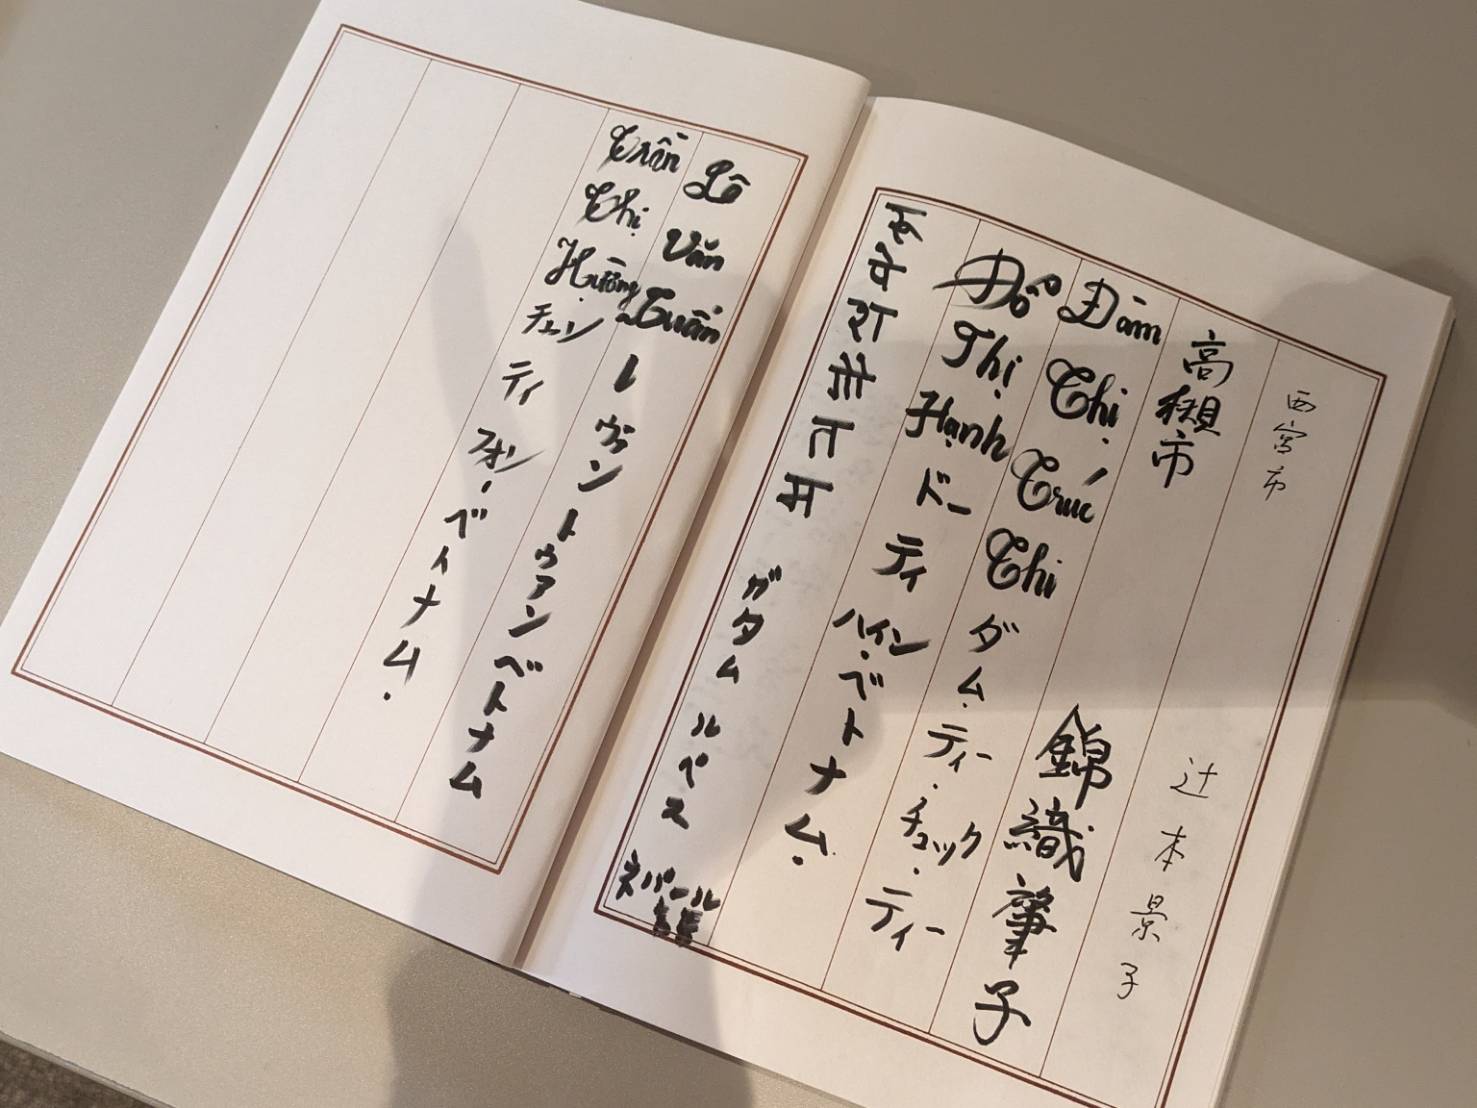 西宮市 辻本景子
高槻市 錦織肇子
Đàm Thị Trúc Thi ダム・ティー・チュック・ティー
Đỗ Thị Hạnh ドー ティ ハイン・ベトナム・
ガタム ルペス ネパール
Lê Văn Tuấn レ ヴァン トゥアン ベトナム
Trần Thị Hường チェン ティ フォン・ベトナム・